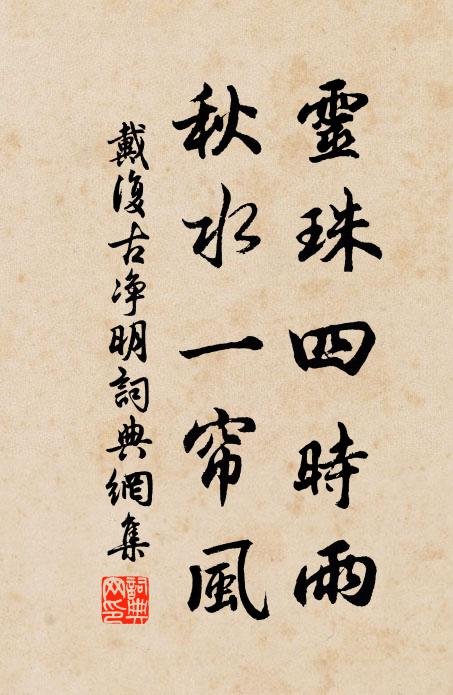 靈珠四時雨
秋水一帘風
戴復古净明詞典網集
詞典網印